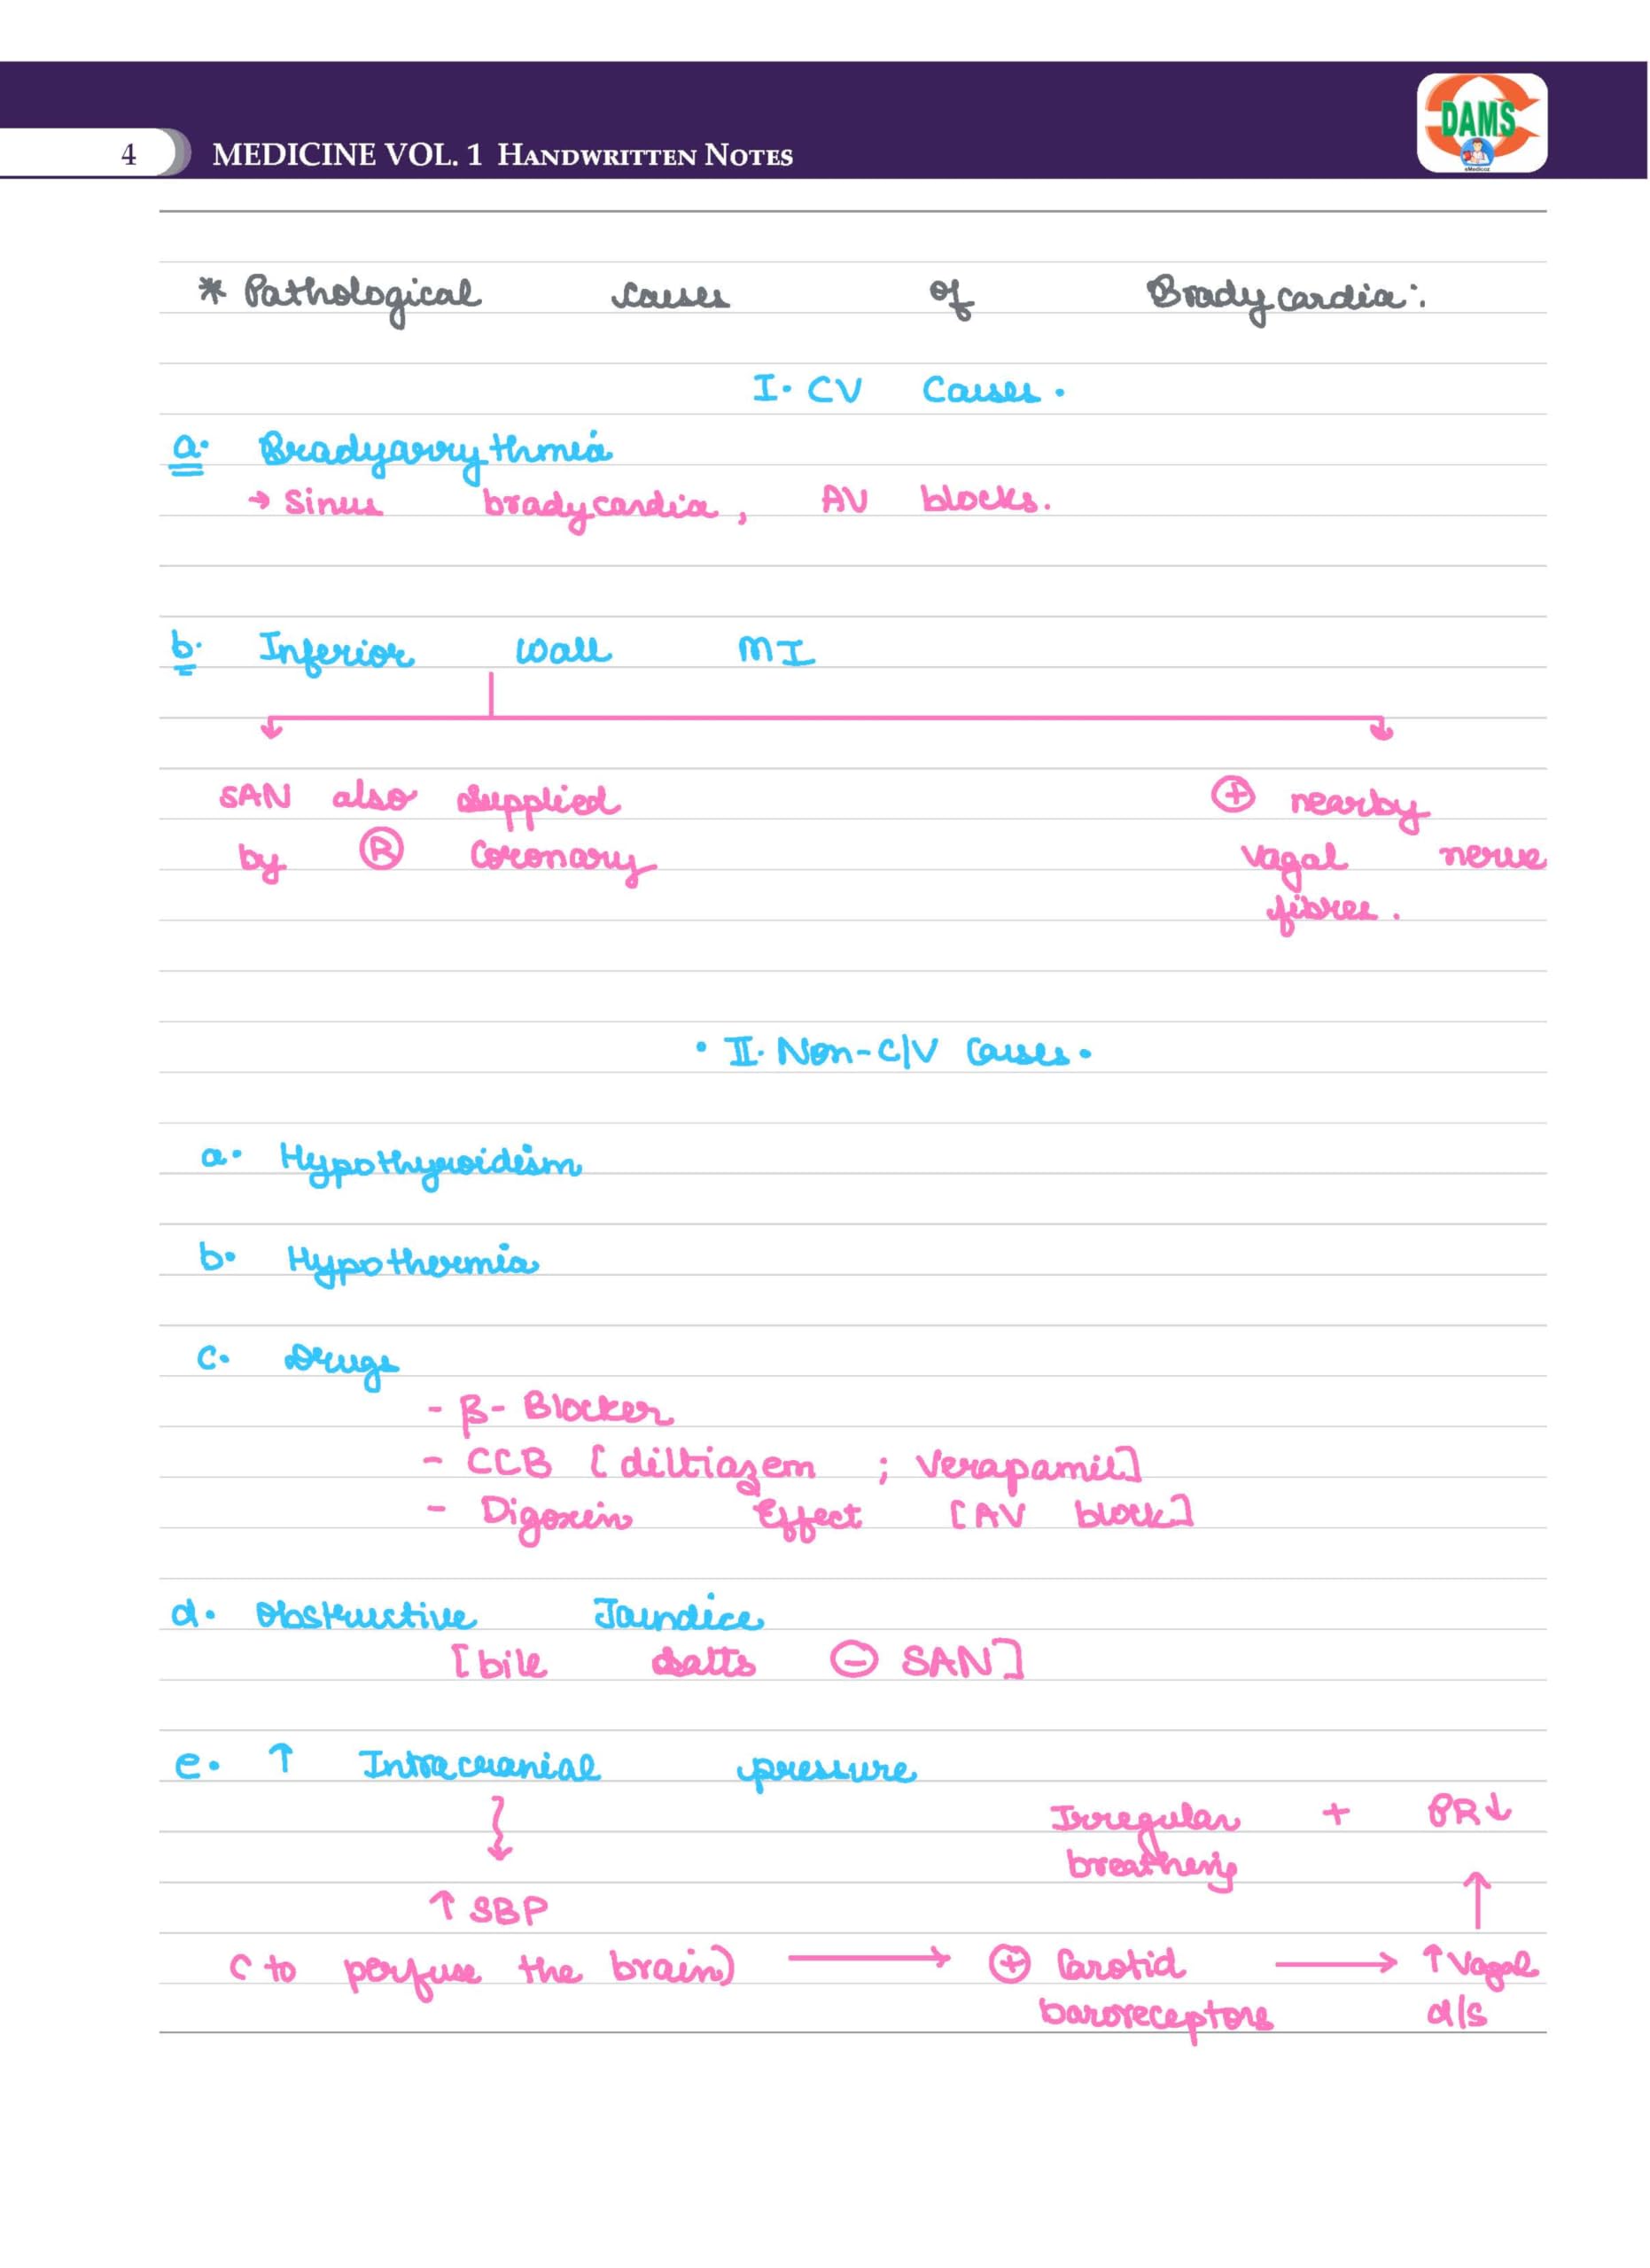 4 MEDICINE VOL. 1 HANDWRITTEN NOTES
DAMS
eMedicoz
* Pathological causes of Bradycardia:
I. CV Causes.
a. Bradyarrythmia
→ Sinus bradycardia, AV blocks.
b. Inferior wall MI
SAN also supplied
by Ⓡ Coronary
⊕ nearby
vagal nerve
fibres.
• II. Non-C/V Causes.
a. Hypothyroidism
b. Hypothermia
c. Drugs
- β- Blocker
- CCB [diltiazem ; Verapamil]
- Digoxin Effect [AV block]
d. Obstructive Jaundice
[bile salts ⊖ SAN]
e. ↑ Intracranial pressure
↑ SBP
(to perfuse the brain) → ⊕ Carotid
baroreceptors
→ ↑ Vagal
d/s
↑
Irregular + PR↓
breathing